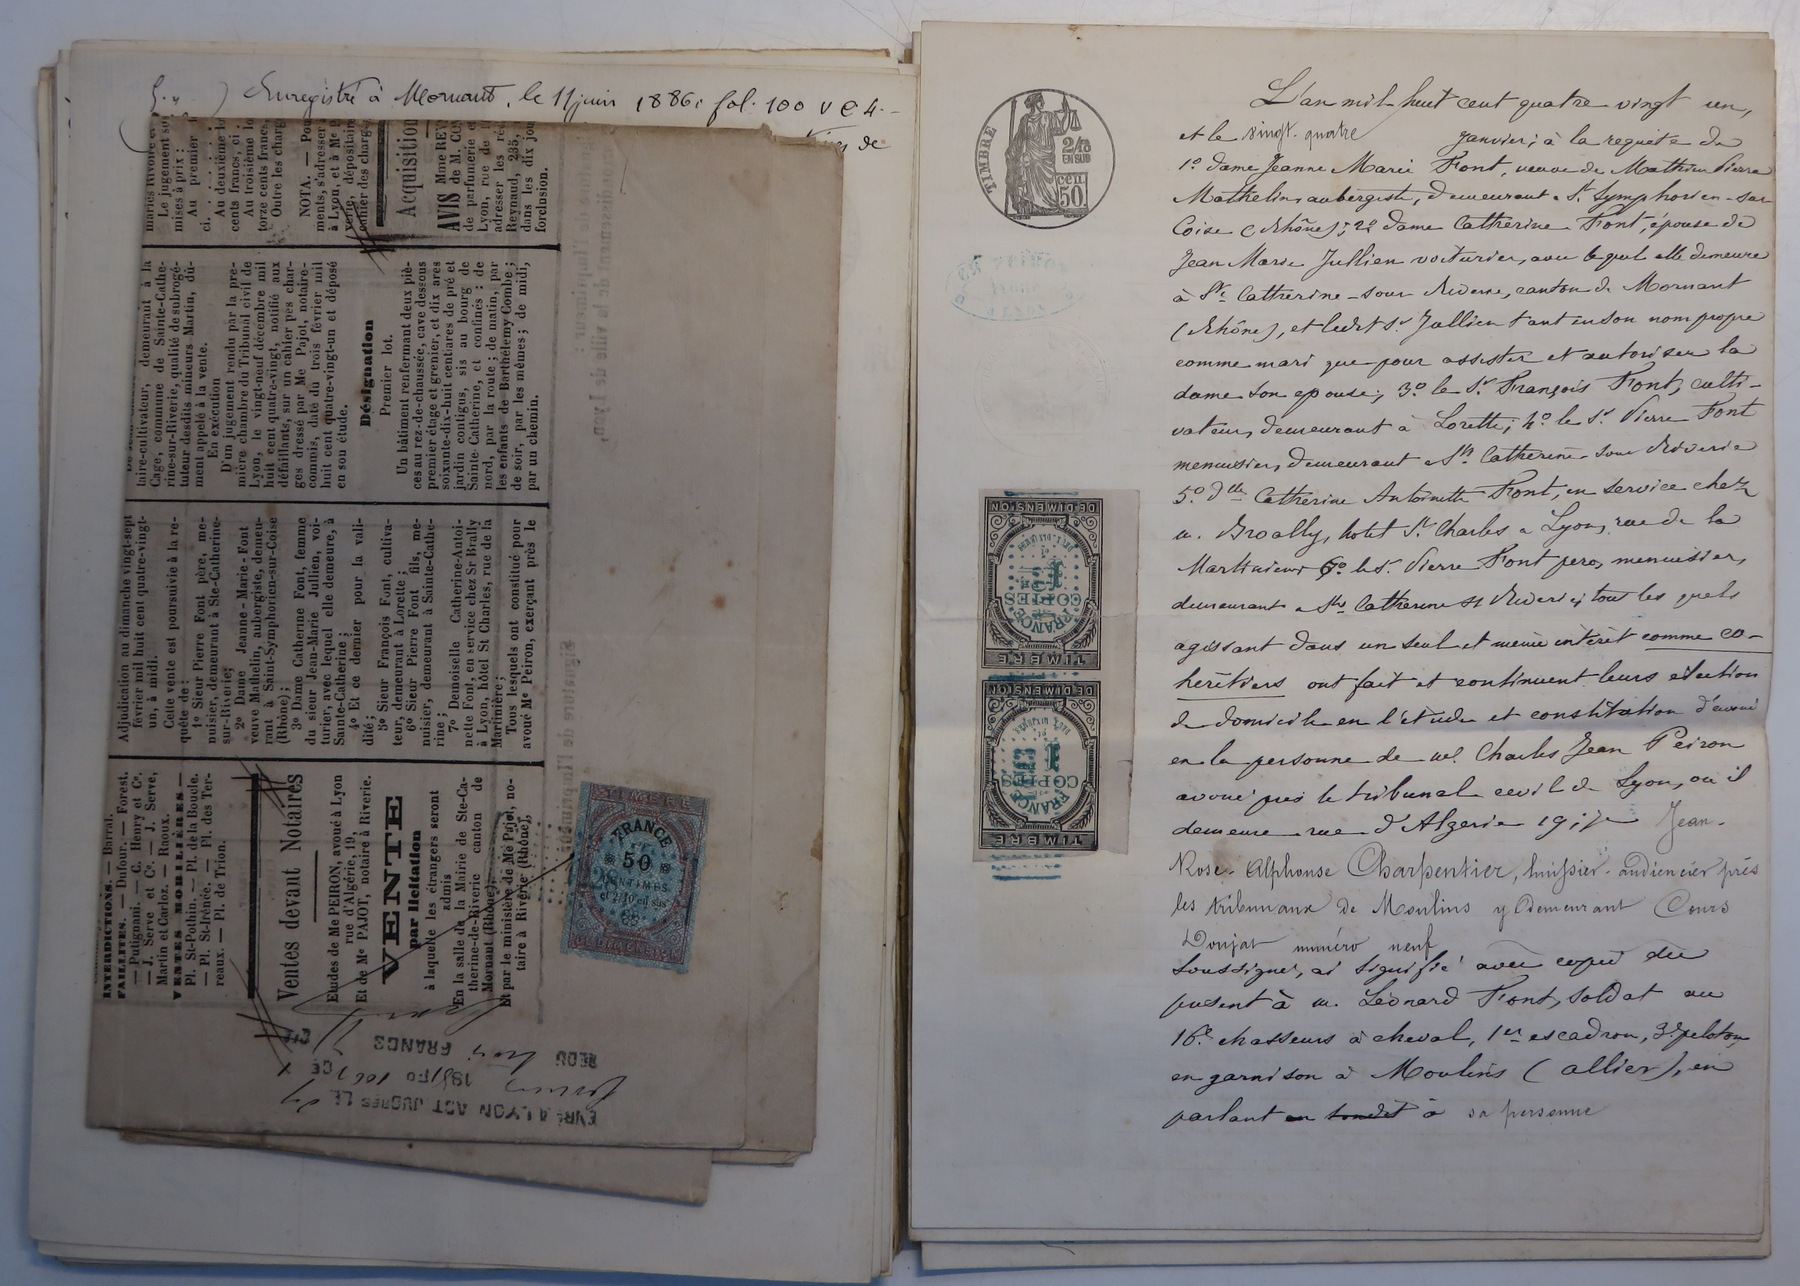 Enregistré à Mornant, le 11 juin 1886, fol. 100 v C 4.
de
INTERDICTIONS. — Barral.
FAILLITES. — Dufour. — Forest.
— Putignani. — C. Henry et Ce.
— J. Serve et Ce. — J. Serve,
Martin et Carloz. — Raoux.
VENTES MOBILIÈRES —
Pl. St-Pothin. — Pl. de la Boucle.
— Pl. St-Irénée. — Pl. des Ter-
reaux. — Pl. de Trion.
Ventes devant Notaires
Etudes de Me PEIRON, avoué à Lyon
rue d'Algérie, 19,
Et de Me PAJOT, notaire à Riverie.
VENTE
par licitation
à laquelle les étrangers seront
admis
En la salle de la Mairie de Ste-Ca-
therine-de-Riverie canton de
Mornant (Rhône),
Et par le ministère de Me Pajot, no-
taire à Riverie (Rhône),
Adjudication au dimanche vingt-sept
février mil huit cent quatre-vingt-
un, à midi.
Cette vente est poursuivie à la re-
quête de :
1o Sieur Pierre Font père, me-
nuisier, demeurant à Ste-Catherine-
sur-Riverie;
2o Dame Jeanne-Marie-Font
veuve Mathelin, aubergiste, demeu-
rant à Saint-Symphorien-sur-Coise
(Rhône);
3o Dame Catherine Font, femme
du sieur Jean-Marie Jullien, voi-
turier, avec lequel elle demeure, à
Sainte-Catherine ;
4o Et ce dernier pour la vali-
dité;
5o Sieur François Font, cultiva-
teur, demeurant à Lorette ;
6o Sieur Pierre Font fils, me-
nuisier, demeurant à Sainte-Cathe-
rine ;
7o Demoiselle Catherine-Antoi-
nette Font, en service chez Sr Brally
à Lyon, hôtel St Charles, rue de la
Martinière;
Tous lesquels ont constitué pour
avoué Me Peiron, exerçant près le
taire-cultivateur, demeurant à la
Cage, commune de Sainte-Cathe-
rine-sur-Riverie, qualité de subrogé-
tuteur desdits mineurs Martin, dû-
ment appelé à la vente.
En exécution
D'un jugement rendu par la pre-
mière chambre du Tribunal civil de
Lyon, le vingt-neuf décembre mil
huit cent quatre-vingt, notifié aux
défaillants, sur un cahier des char-
ges dressé par Me Pajot, notaire-
commis, daté du trois février mil
huit cent quatre-vingt-un et déposé
en son étude.
Désignation
Premier lot.
Un bâtiment renfermant deux piè-
ces au rez-de-chaussée, cave dessous
premier étage et grenier, et dix ares
soixante-dix-huit centiares de pré et
jardin contigus, sis au bourg de
Sainte-Catherine, et confinés : de
nord, par la route ; de matin, par
les enfants de Barthélemy Combe ;
de soir, par les mêmes ; de midi,
par un chemin.
Le jugement
mises à prix :
Au premier
ci.
Au deuxième
cents francs, ci
Au troisième
torze cents francs,
Outre les charg
NOTA. — Pou
ments, s'adresser
à Lyon, et à Me
dépositaire
cahier des charg
Acquisition
AVIS Mme REV
de M. CO
de parfumerie e
Lyon, rue de
adresser les
Reynaud, 235,
dans les dix jou
forclusion.
Signature de l'Imprimeur
TIMBRE
FRANCE
50
CENTIMES
et 2/10 en sus
ENRé A LYON ACT JUDRES LE
REÇU trois FRANCS
TIMBRE
2/10
EN SUS
CEN
50.
DE DIMENSION
1
COPIES
FRANCE
TIMBRE
DE DIMENSION
1
COPIES
FRANCE
TIMBRE
L'an mil huit cent quatre vingt un,
et le vingt-quatre janvier; à la requête de
1o dame Jeanne Marie Font, veuve de Mathieu Pierre
Mathelin, aubergiste, demeurant à St Symphorien-sur
Coise (Rhône); 2o dame Catherine Font, épouse de
Jean Marie Jullien voiturier, avec lequel elle demeure
à Ste Catherine-sous Riverie, canton de Mornant
(Rhône), et ledit sr Jullien tant en son nom propre
comme mari que pour assister et autoriser la
dame son epouse; 3o le Sr François Font, culti-
vateur, demeurant à Lorette; 4o le Sr Pierre Font
menuisier, demeurant à Ste Catherine-sous Riverie
5o dlle Catherine Antoinette Font, en service chez
m. Broally, hotel St Charles à Lyon, rue de la
Martiniere 6o le sr Pierre Font père, menuisier,
demeurant à Ste Catherine st Riverie; tous les quels
agissant dans un seul et même intérêt comme co-
héritiers ont fait et continuent leurs election
de domicile en l'étude et constitution d'avoué
en la personne de me Charles Jean Peiron
avoué près le tribunal civil de Lyon, où il
demeure rue d'Algérie 19; je Jean-
Rose-Alphonse Charpentier, huissier-audiencier près
les tribunaux de Moulins y demeurant Cours
Doujat numéro neuf
soussigné, ai signifié avec copie du
présent à m. Léonard Font, soldat au
16e chasseurs à cheval, 1er escadron, 3e peloton,
en garnison à Moulins (allier), en
parlant à sa personne